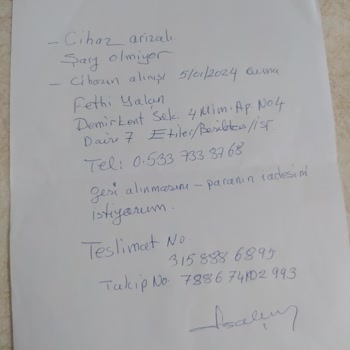 - Cihaz arızalı
Şarj olmıyor
- Cihazın alınışı 5/01/2024 Cuma
Fethi Yalçın
Demirkent Sok. 4 Mim. Ap. No 4
Daire 7 Etiler/Beşiktaş/İST
Tel: 0.533 733 8768
geri alınmasını - paranın iadesini
istiyorum.
Teslimat No
315 888 6895
Takip No. 7886 74102 993